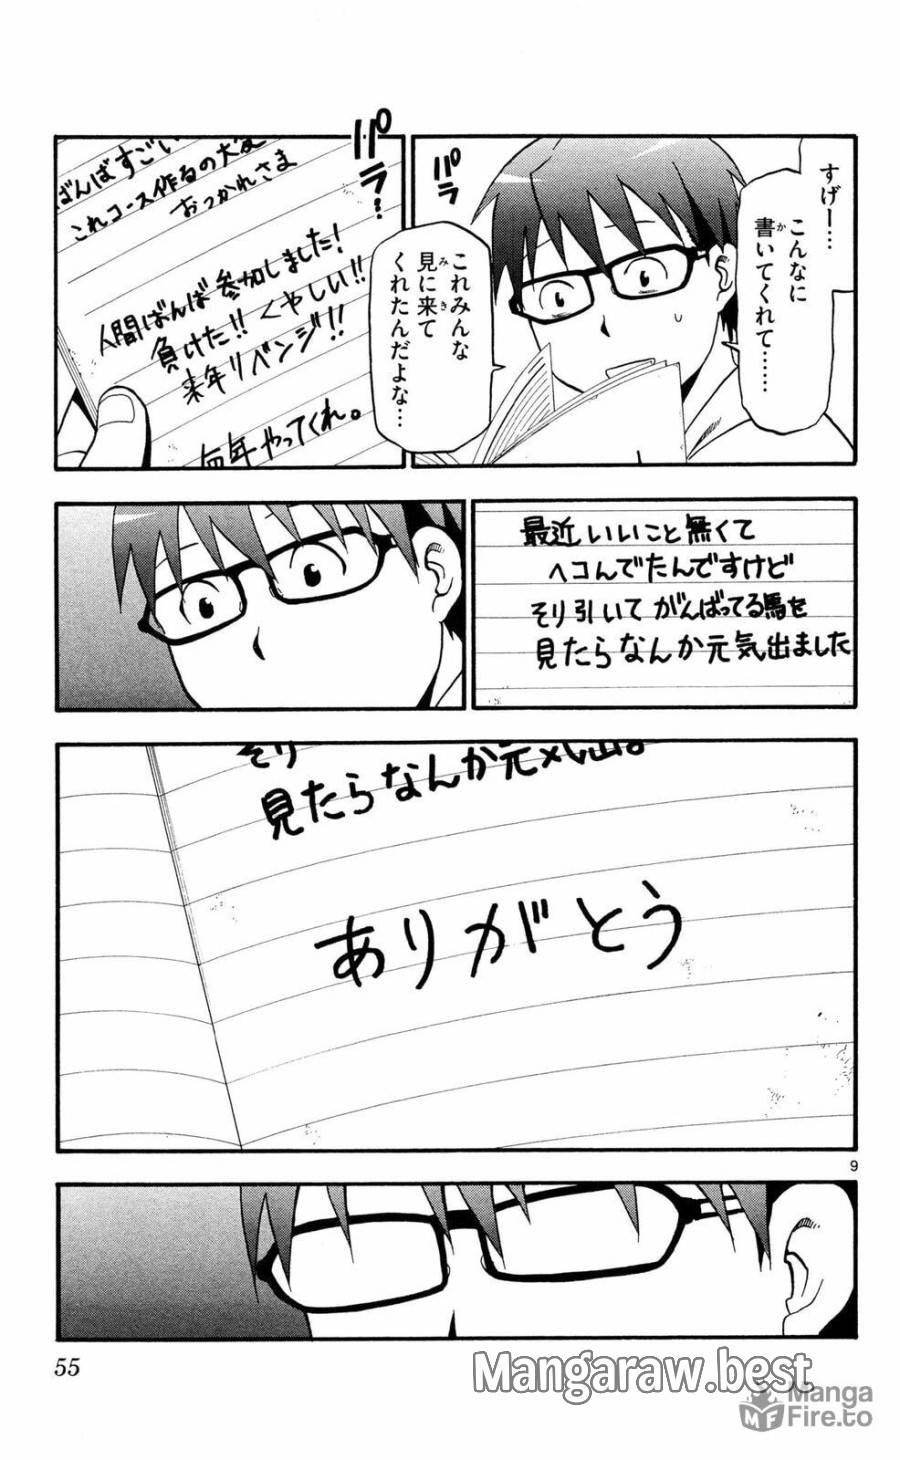 すげー…
こんなに
書いてくれて……
パラ
これみんな
見に来て
くれたんだよな…
パラ…
ばんばすごい
これコース作るの大変
おつかれさま
人間ばんば参加しました!
負けた!!くやしい!!
来年リベンジ!!
毎年やってくれ。
最近いいこと無くて
ヘコんでたんですけど
そり引いてがんばってる馬を
見たらなんか元気出ました
そり
見たらなんか元気出
ありがとう
9
55
Mangaraw.best
Manga
Fire.to
MF